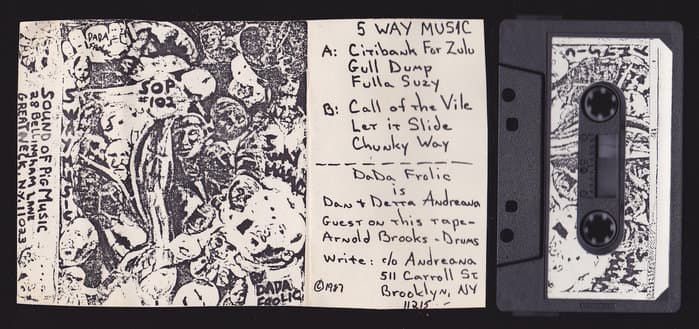 SOUND OF PIG MUSIC
28 BELLINGHAM LANE
GREAT NECK, N.Y. 11023
DADA
FROLIC
SOP
#102
5 WAY MUSIC
5 WAY
MUSIC
BY DADA
FROLIC
5 WAY MUSIC
A: Citibank For Zulu
Gull Dump
Fulla Suzy
B: Call of the Vile
Let it Slide
Chunky Way
DaDa Frolic
is
Dan & Detta Andreana
Guest on this tape-
Arnold Brooks - Drums
Write: c/o Andreana
511 Carroll St
Brooklyn, NY
11215
©1987